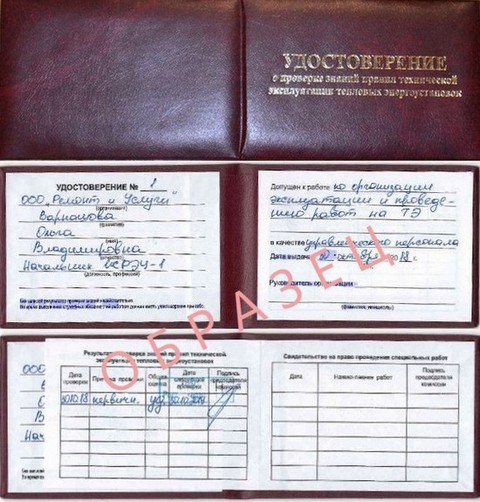 УДОСТОВЕРЕНИЕ
о проверке знаний правил технической
эксплуатации тепловых энергоустановок
УДОСТОВЕРЕНИЕ № 1
ООО "Ремонт и Услуги"
(организация)
(фамилия)
Ольга
(имя)
Владимировна
(отчество)
Начальник
(должность, профессия)
Без записей результатов проверки знаний недействительно.
Допущен к работе по организации
эксплуатации и проведе-
нию работ на ТЭ
в качестве управленческого персонала
Дата выдачи октября 18 г.
Руководитель организации
(фамилия, инициалы)
ОБРАЗЕЦ
ООО
Нач
Результаты проверки знаний правил технической
эксплуатации тепловых энергоустановок
Дата проверки
Причина проверки
Общая оценка
Дата следующей проверки
Подпись председателя комиссии
первичн.
Свидетельство на право проведения специальных работ
Дата
Наименование работ
Подпись председателя комиссии